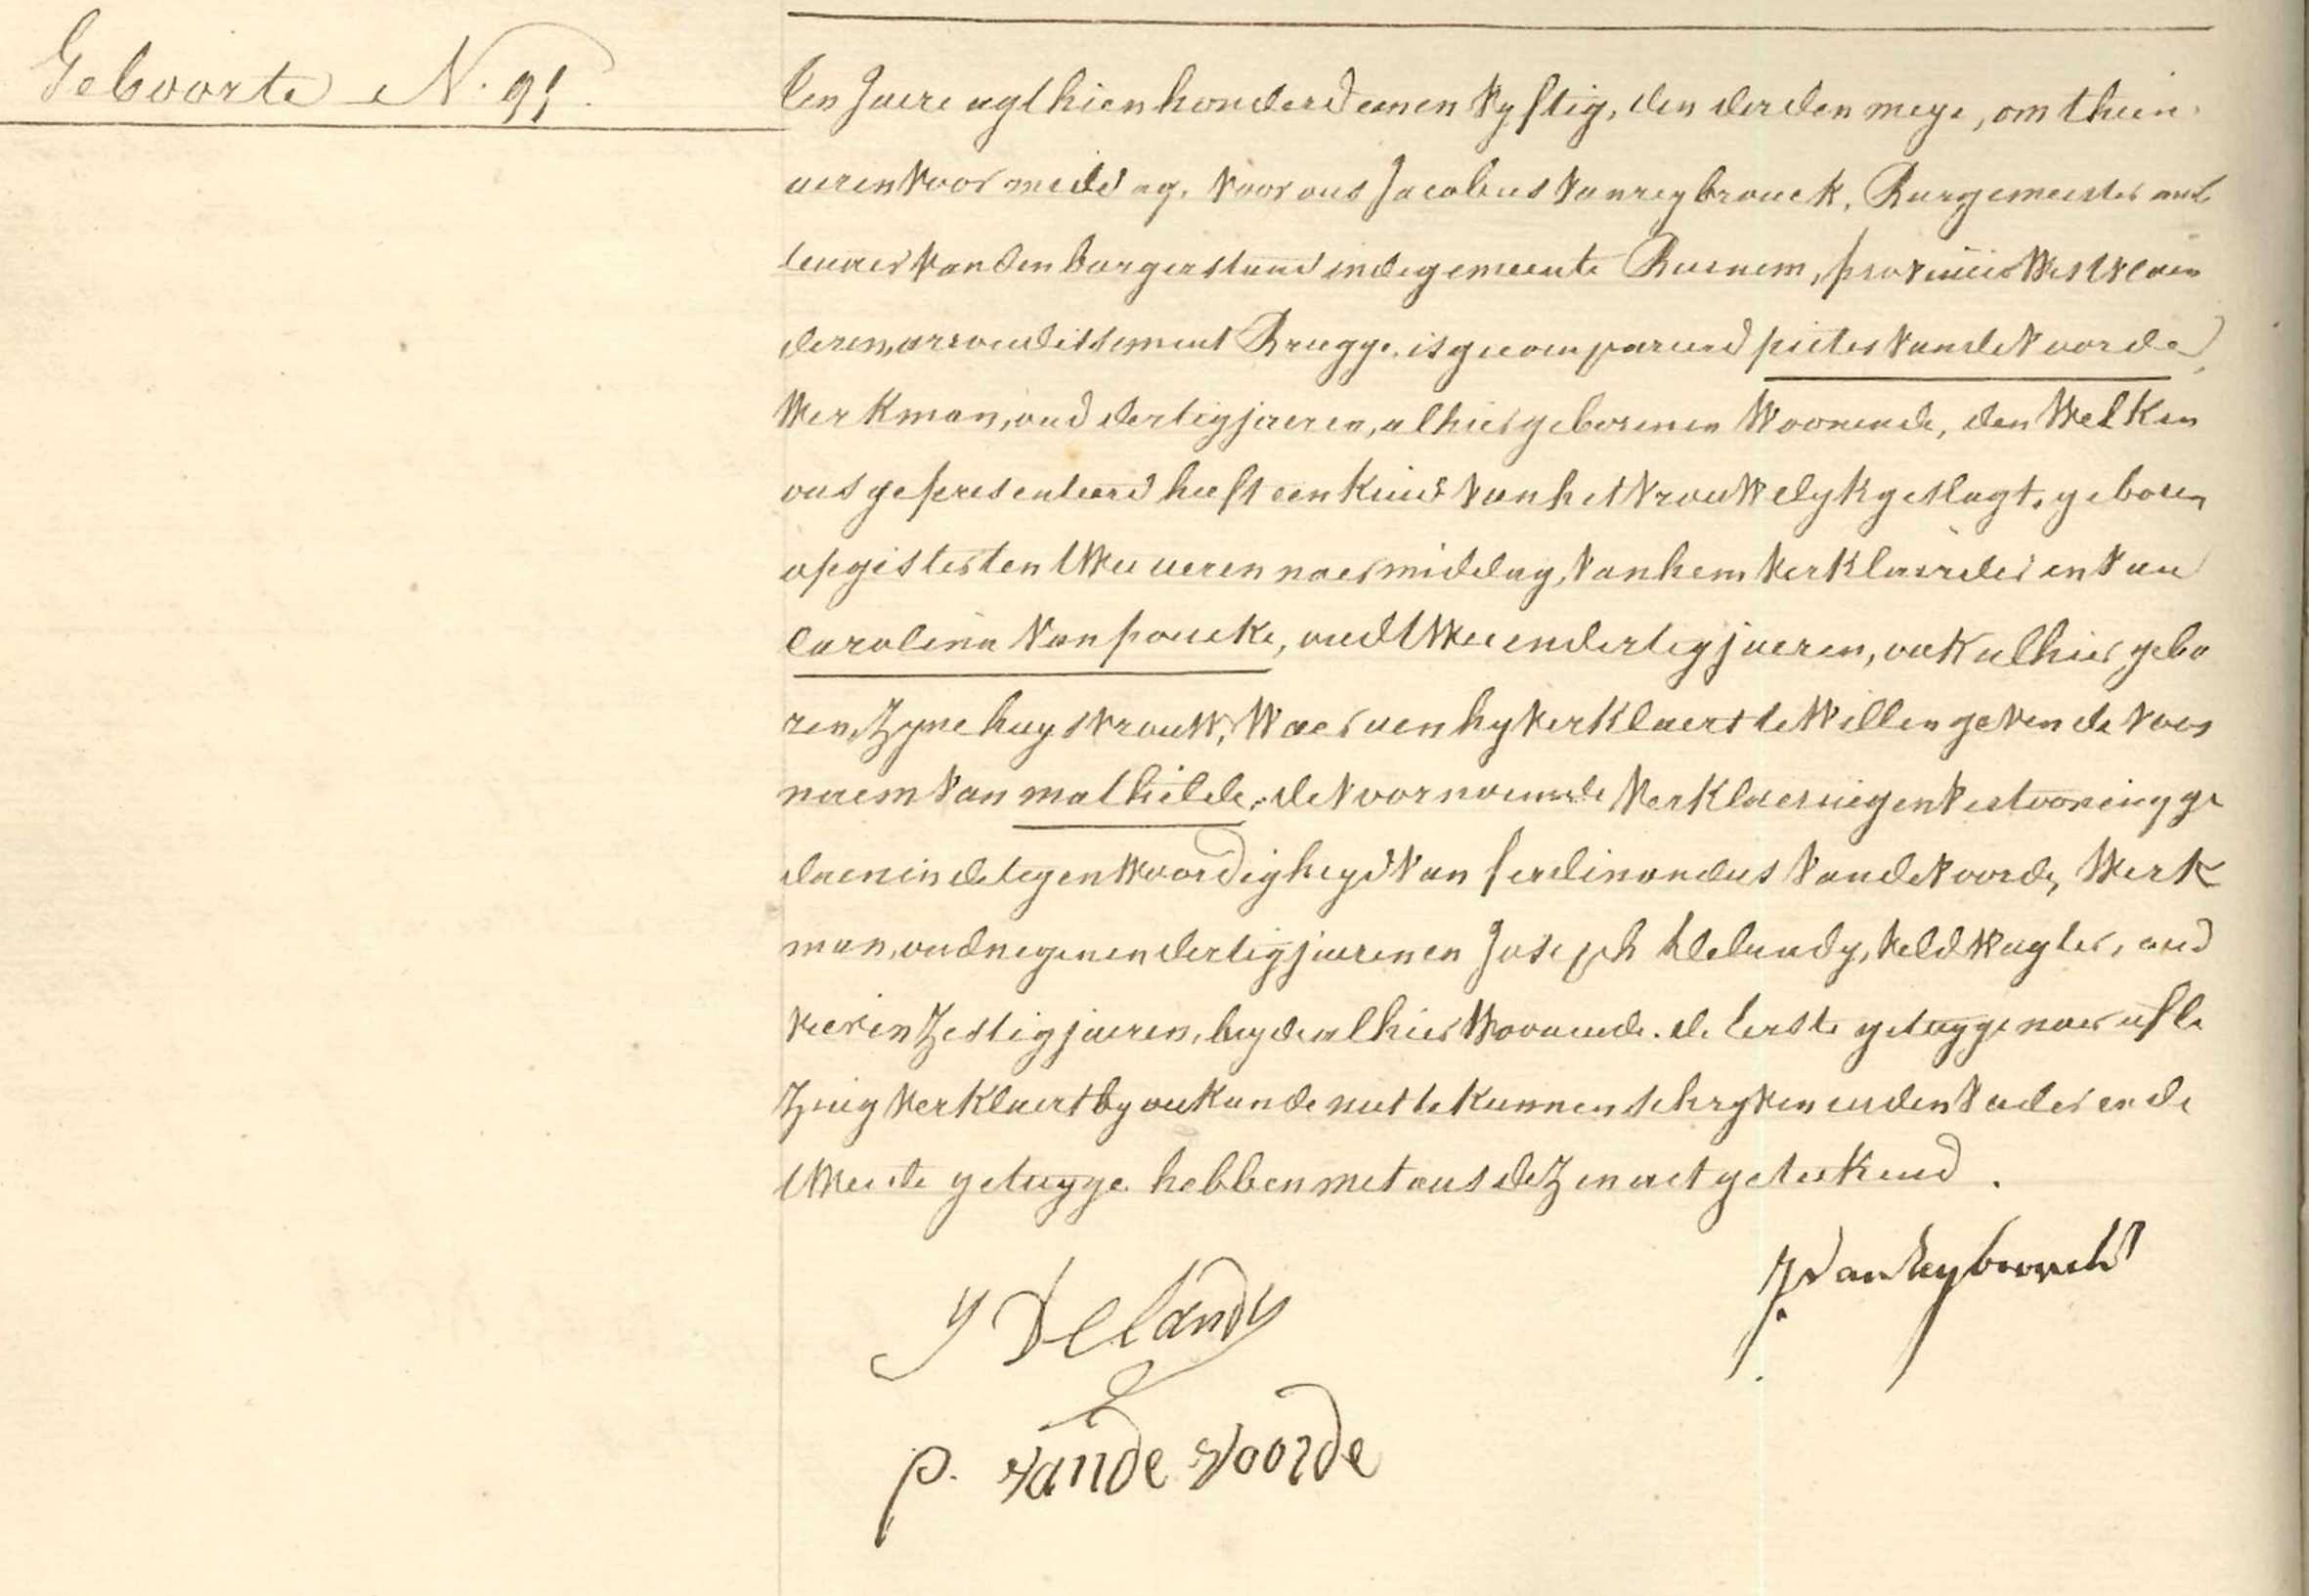 Geboorte N. 91.
Den Jaere agthien honderd eenen vyftig, den derden meye, om thien
ueren voormiddag, voor ons Jacobus Vanreybrouck, Burgemeester amb
tenaer van den burgerstand in de gemeente Ruenem, provincie Westvlaen
deren, arrondissement Brugge, is gecompareerd pieter Vande Voorde
Werkman, oud dertig jaeren, alhier geboren en Woonende, den Welken
ons gepresenteerd heeft een kind van het vrouwelyk geslagt, geboren
op gister ten twee ueren naermiddag, van hem verklaerder en van
Carolina Vanpoucke, oud twee en dertig jaeren, ook alhier gebo
ren, zyne huysvrouw, Waer aen hy verklaert te Willen geven de voor
naem van mathilde, de voornoemde verklaering en vertooning ge
daen in de tegenwoordigheyd van ferdinandus Vande Voorde, Werk
man, oud negen en dertig jaeren en Joseph Delandy, veldwagter, oud
vier en zestig jaeren, beyde alhier Woonende. de eerste getuyge naer afle
zing verklaert by onkunde niet te kunnen schryven en den vader en de
tweede getuyge hebben met ons dezen act geteekend.
J Vanreybrouck
J Delandy
P. Vande Voorde